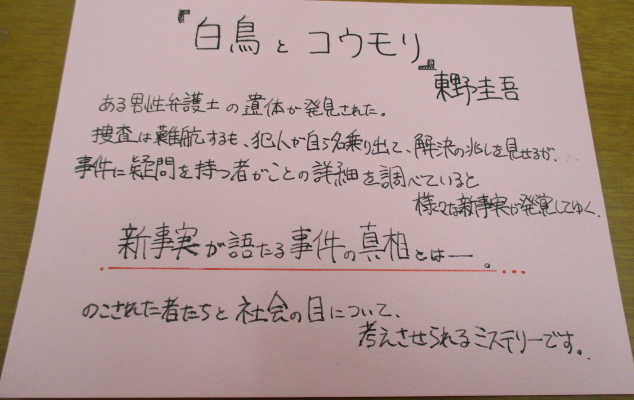 『白鳥とコウモリ』
東野圭吾
ある男性弁護士の遺体が発見された。
捜査は難航するも、犯人が自ら名乗り出て、解決の兆しを見せるが、
事件に疑問を持つ者がことの詳細を調べていると
様々な新事実が発覚してゆく。
新事実が語たる事件の真相とは―。
のこされた者たちと社会の目について、
考えさせられるミステリーです。